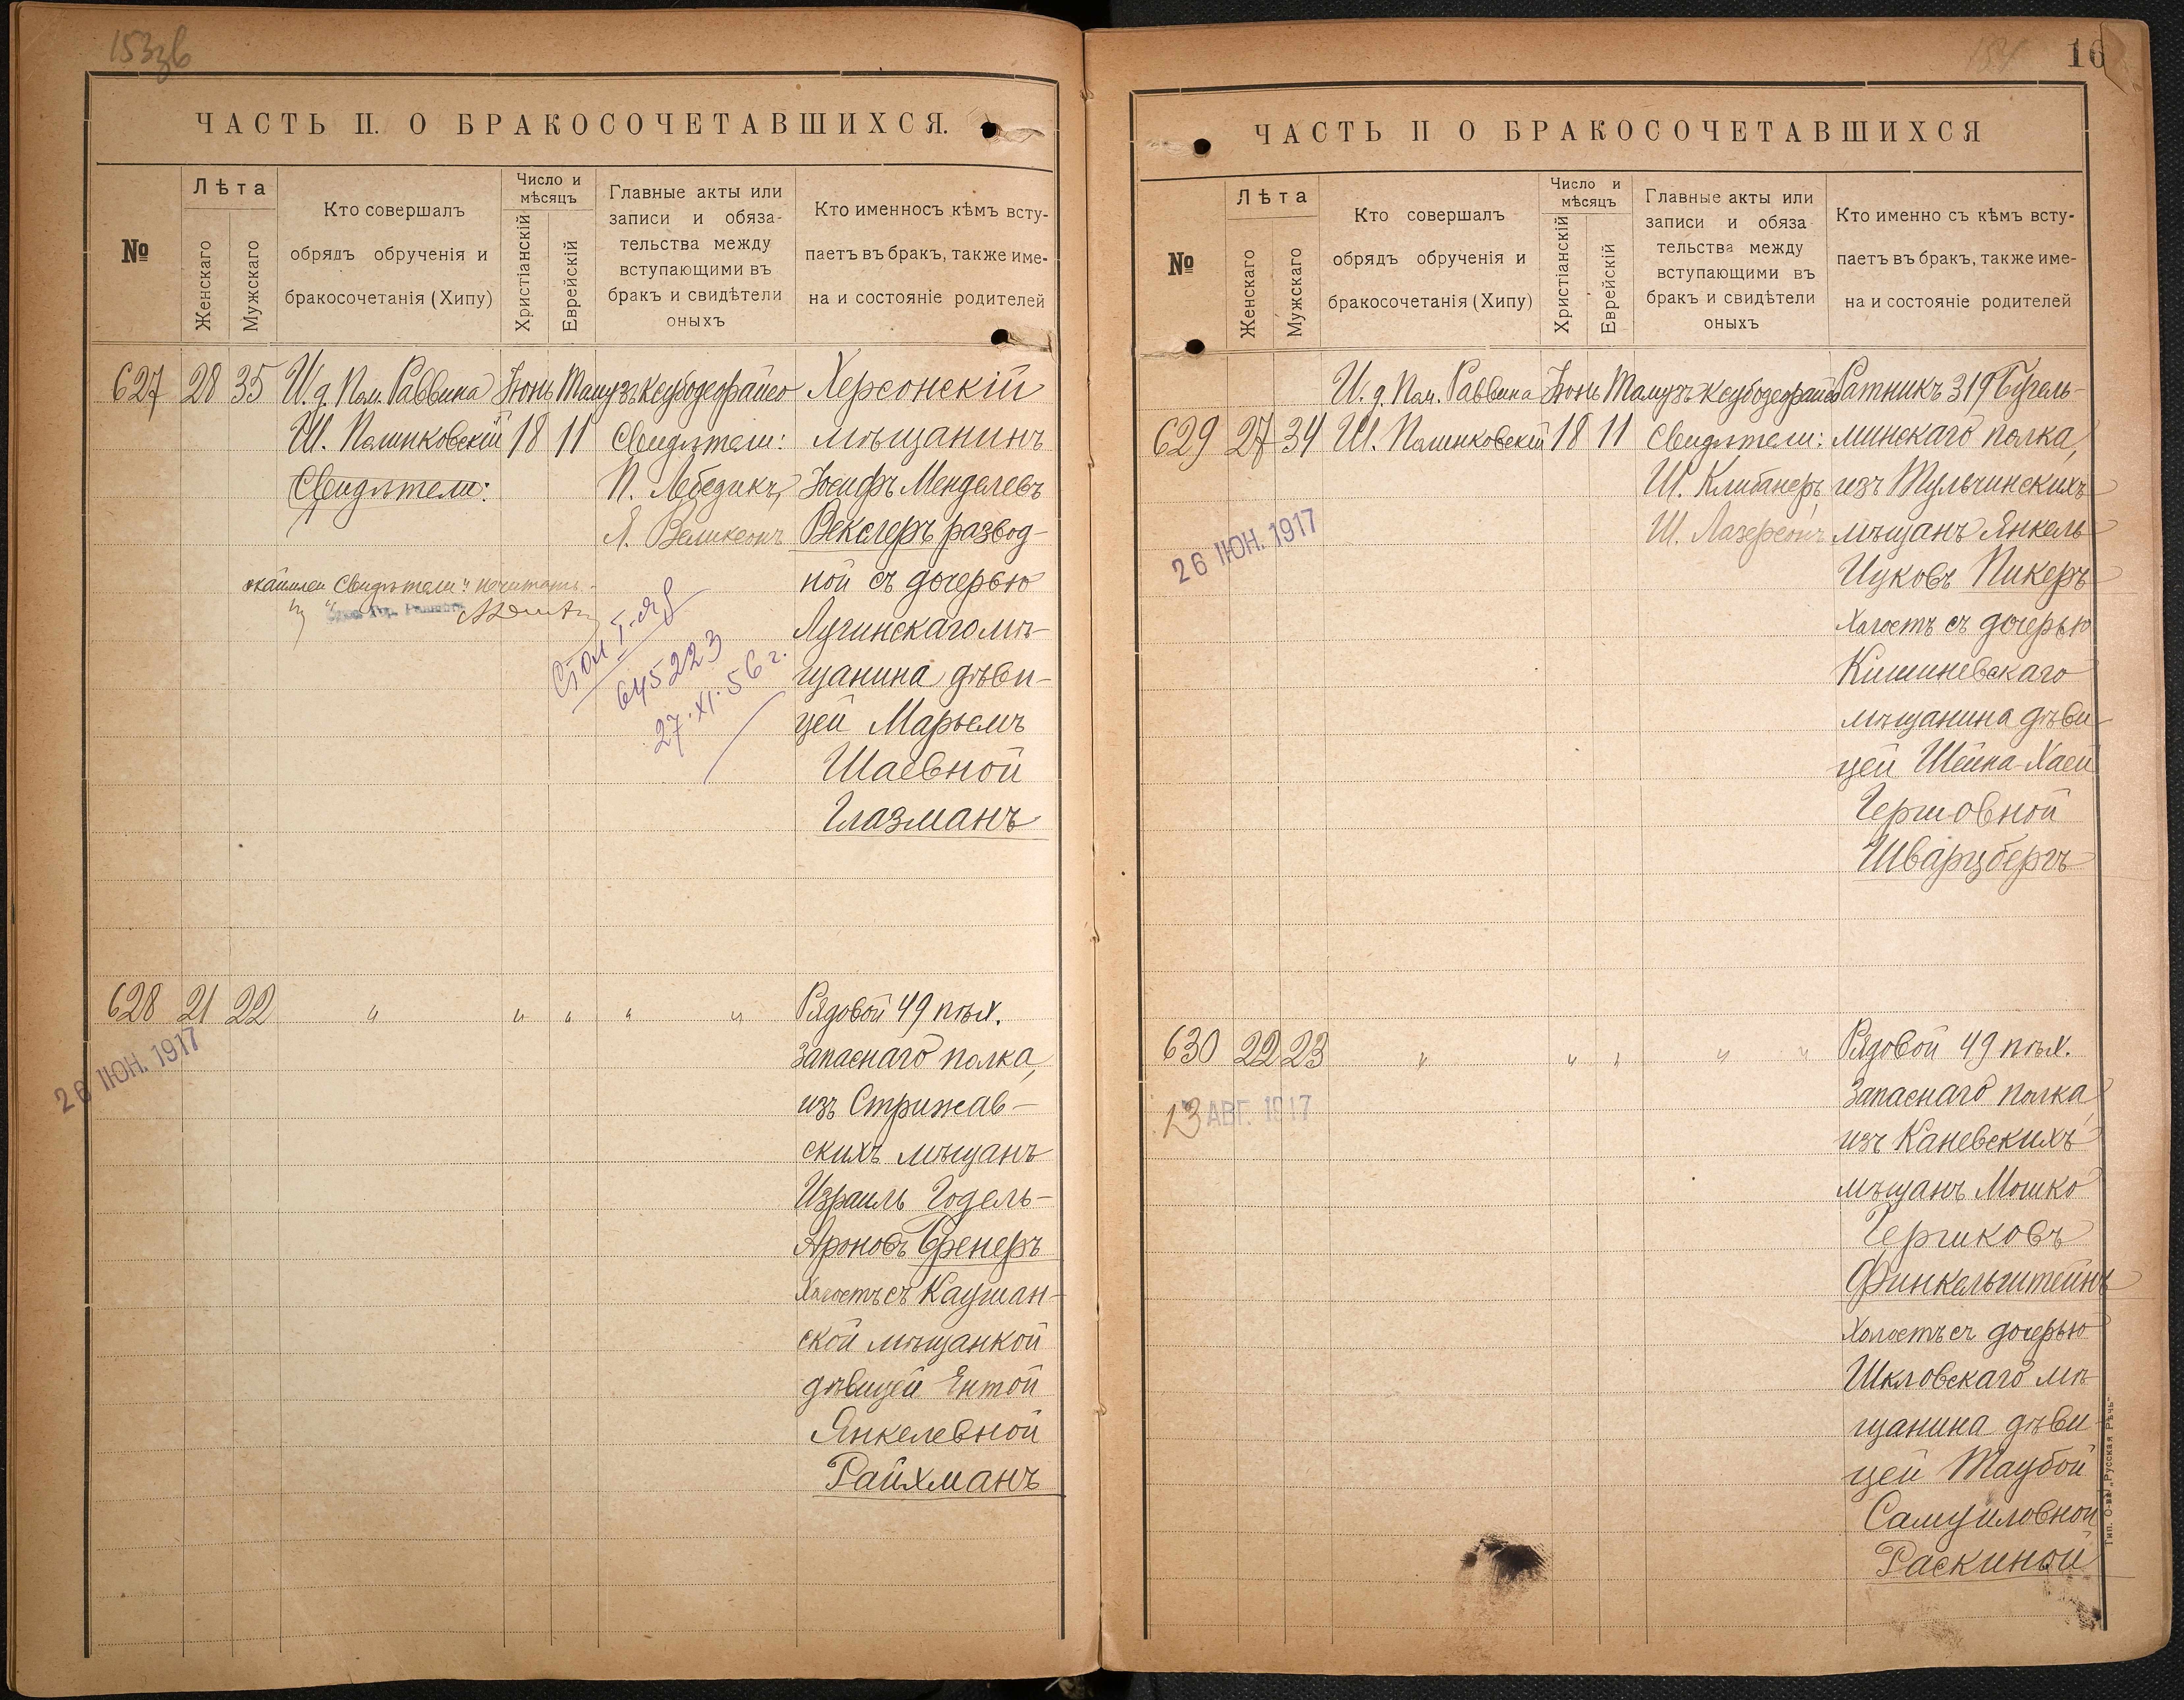 153зв
ЧАСТЬ II. О БРАКОСОЧЕТАВШИХСЯ.
№
Лѣта
Женскаго
Мужскаго
Кто совершалъ
обрядъ обрученія и
бракосочетанія (Хипу)
Число и
мѣсяцъ
Христіанскій
Еврейскій
Главные акты или
записи и обяза-
тельства между
вступающими въ
бракъ и свидѣтели
оныхъ
Кто именносъ кѣмъ всту-
паетъ въ бракъ, также име-
на и состояніе родителей
627 28 35 И. д. Пом. Раввина Іюнь Тамузъ Ксубодеорайсо Херсонскій
Ш. Полинковскій 18 11 Свидѣтели: мѣщанинъ
Свидѣтели: П. Лебедикъ, Іосифъ Менделевъ
Векслеръ развод-
Свидѣтели" не читать
ной съ дочерью
Лугинскаго мѣ-
щанина дѣви-
цей Марьемъ
Шаевной
Глазманъ
645223
27.XI.56 г.
628 21 22 " " " " " Рядовой 49 пѣх.
26 ІЮН. 1917
запаснаго полка,
изъ Стрижав-
скихъ мѣщанъ
Израиль Годель-
Ароновъ Бренеръ
Холостъ съ Каушан-
ской мѣщанкой
дѣвицей Ентой
Янкелевной
Райхманъ
154
16
ЧАСТЬ II О БРАКОСОЧЕТАВШИХСЯ
№
Лѣта
Женскаго
Мужскаго
Кто совершалъ
обрядъ обрученія и
бракосочетанія (Хипу)
Число и
мѣсяцъ
Христіанскій
Еврейскій
Главные акты или
записи и обяза
тельства между
вступающими въ
бракъ и свидѣтели
оныхъ
Кто именно съ кѣмъ всту-
паетъ въ бракъ, также име-
на и состояніе родителей
И. д. Пом. Раввина Іюнь Тамузъ Ксубодеорайсо Ратникъ 319 Бугуль-
629 27 34 Ш. Полинковскій 18 11 Свидѣтели: минскаго полка,
Ш. Клитнеръ, изъ Тульчинскихъ
Ш. Лазерсонъ мѣщанъ Янкель
26 ІЮН. 1917
Ицковъ Пикеръ
Холостъ съ дочерью
Кишиневскаго
мѣщанина дѣви
цей Шейна-Хаей
Гершовной
Шварцбергъ
630 22 23 " " " " " Рядовой 49 пѣх.
Запаснаго полка,
13 АВГ. 1917
изъ Каневскихъ
мѣщанъ Мошко
Гершковъ
Финкельштейнъ
Холостъ съ дочерью
Шкловскаго мѣ
щанина дѣви
цей Таубой
Самуиловной
Раскиной
Тип. О-ва „Русская Рѣчь"